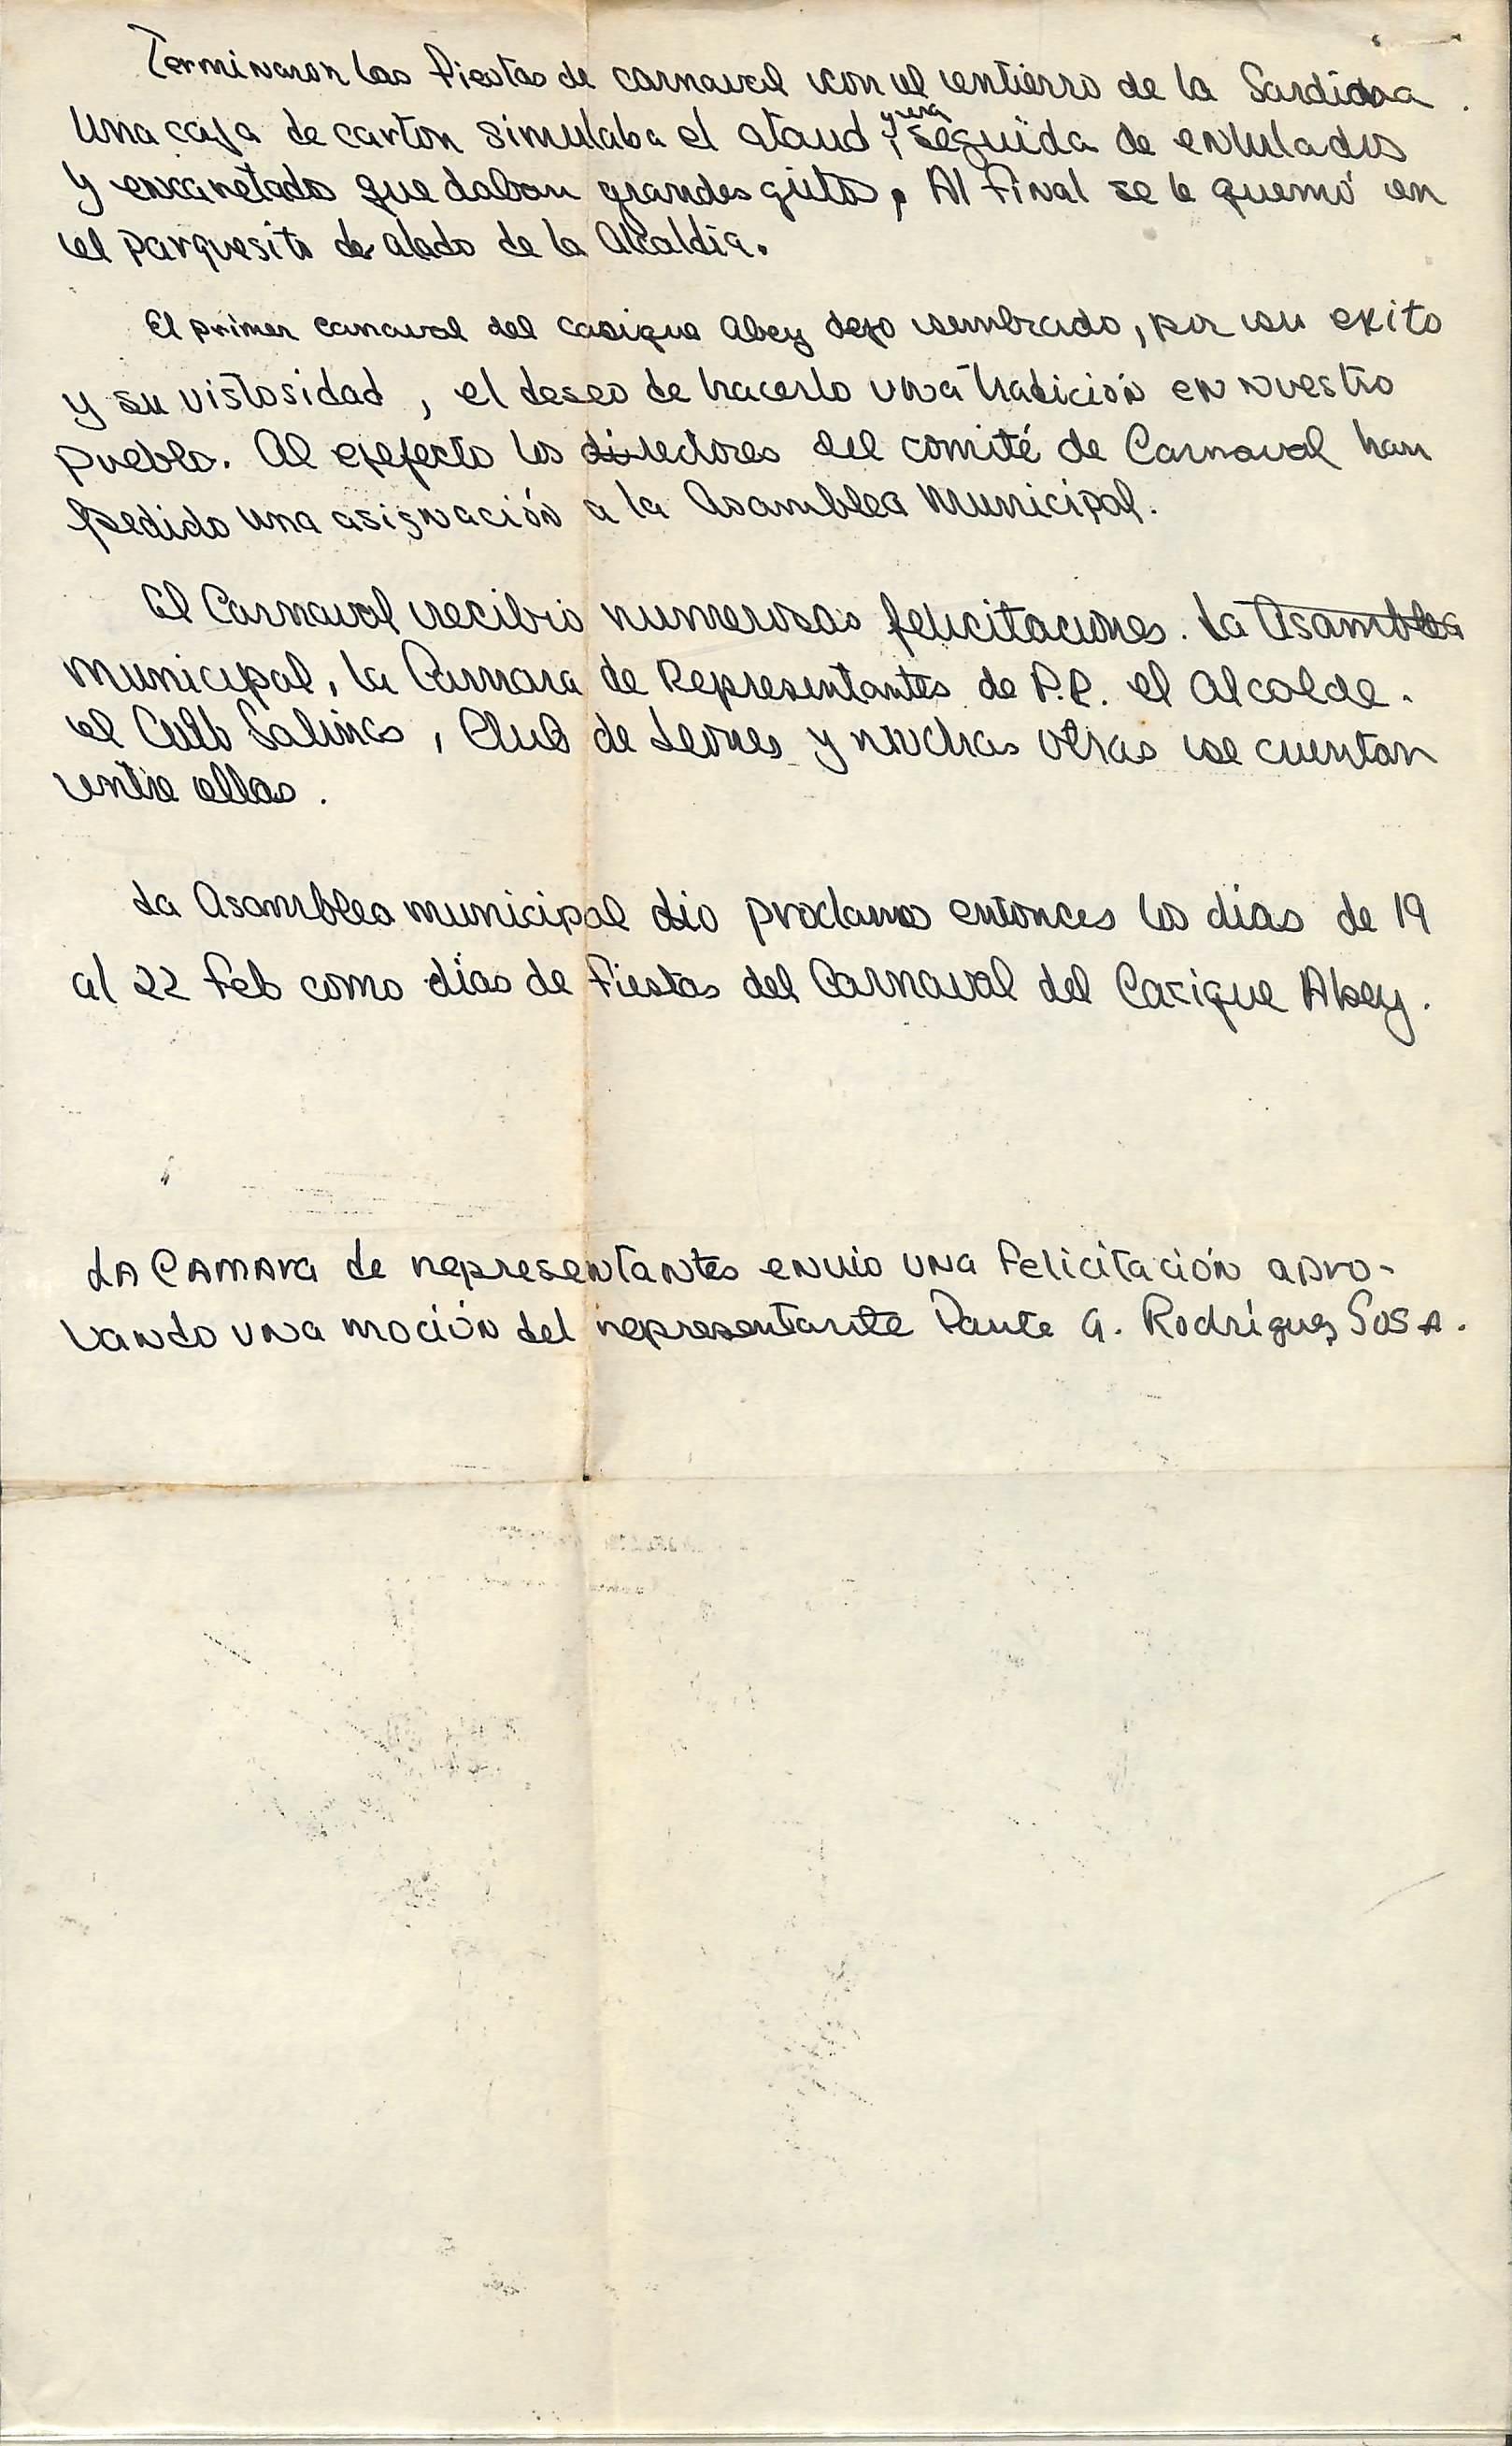 Terminaron las fiestas de carnaval con el entierro de la Sardina.
Una caja de carton simulaba el ataud y era seguida de enlutados
y encaretados que daban grandes gritos. Al final se le quemó en
el parquesito de alado de la Alcaldía.
El primer carnaval del casique Abey dejo sembrado, por su exito
y su vistosidad, el deseo de hacerlo una tradición en nuestro
pueblo. Al efefecto los directores del comité de Carnaval han
pedido una asignación a la Asamblea Municipal.
El Carnaval recibio numerosas felicitaciones. La Asamblea
Municipal, la Camara de Representantes de P.R. el Alcalde.
el Culb Salinas, Club de Leones y muchas otras se cuentan
entre ellas.
La Asamblea municipal dio proclamo entonces los dias de 19
al 22 feb como dias de fiestas del Carnaval del Cacique Abey.
LA CAMAra de representantes envio una felicitación apro-
vando una moción del representante Dante A. Rodríguez Sosa.